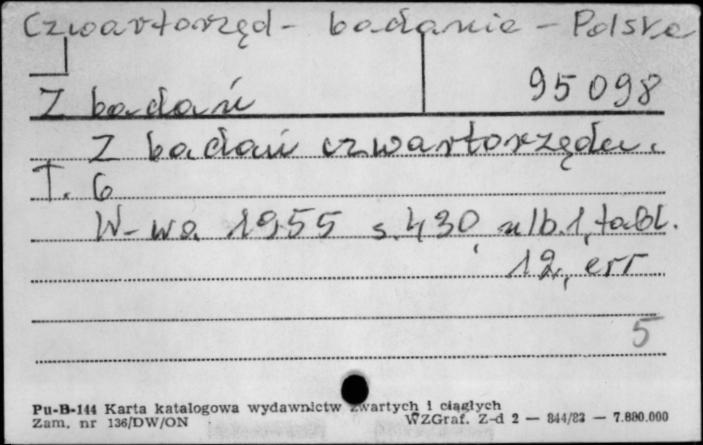 Czwartorzęd - badanie - Polska
Z badań 95 098
Z badań czwartorzędu.
T. 6
W-wa 1955 s. 430, nlb. 1, tabl.
12, err
5
Pu-B-144 Karta katalogowa wydawnictw zwartych i ciągłych
Zam. nr 136/DW/ON WZGraf. Z-d 2 — 844/83 — 7.880.000